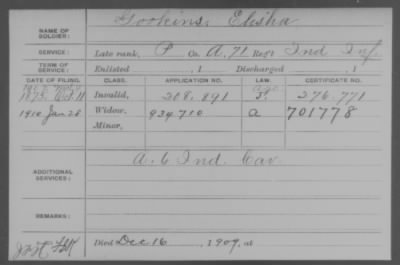 NAME OF SOLDIER: Gookins, Elisha
SERVICE: Late rank, P Co. A, 71 Reg't Ind Inf.
TERM OF SERVICE: Enlisted , 1 Discharged , 1
DATE OF FILING. CLASS. APPLICATION NO. LAW. CERTIFICATE NO.
1875 Oct 11 Invalid, 208.891 276.771
1910 Jan 28 Widow, 934.710 a 701778
Minor,
ADDITIONAL SERVICES: A. 6 Ind. Cav.
REMARKS:
Died Dec 16, 1909, at